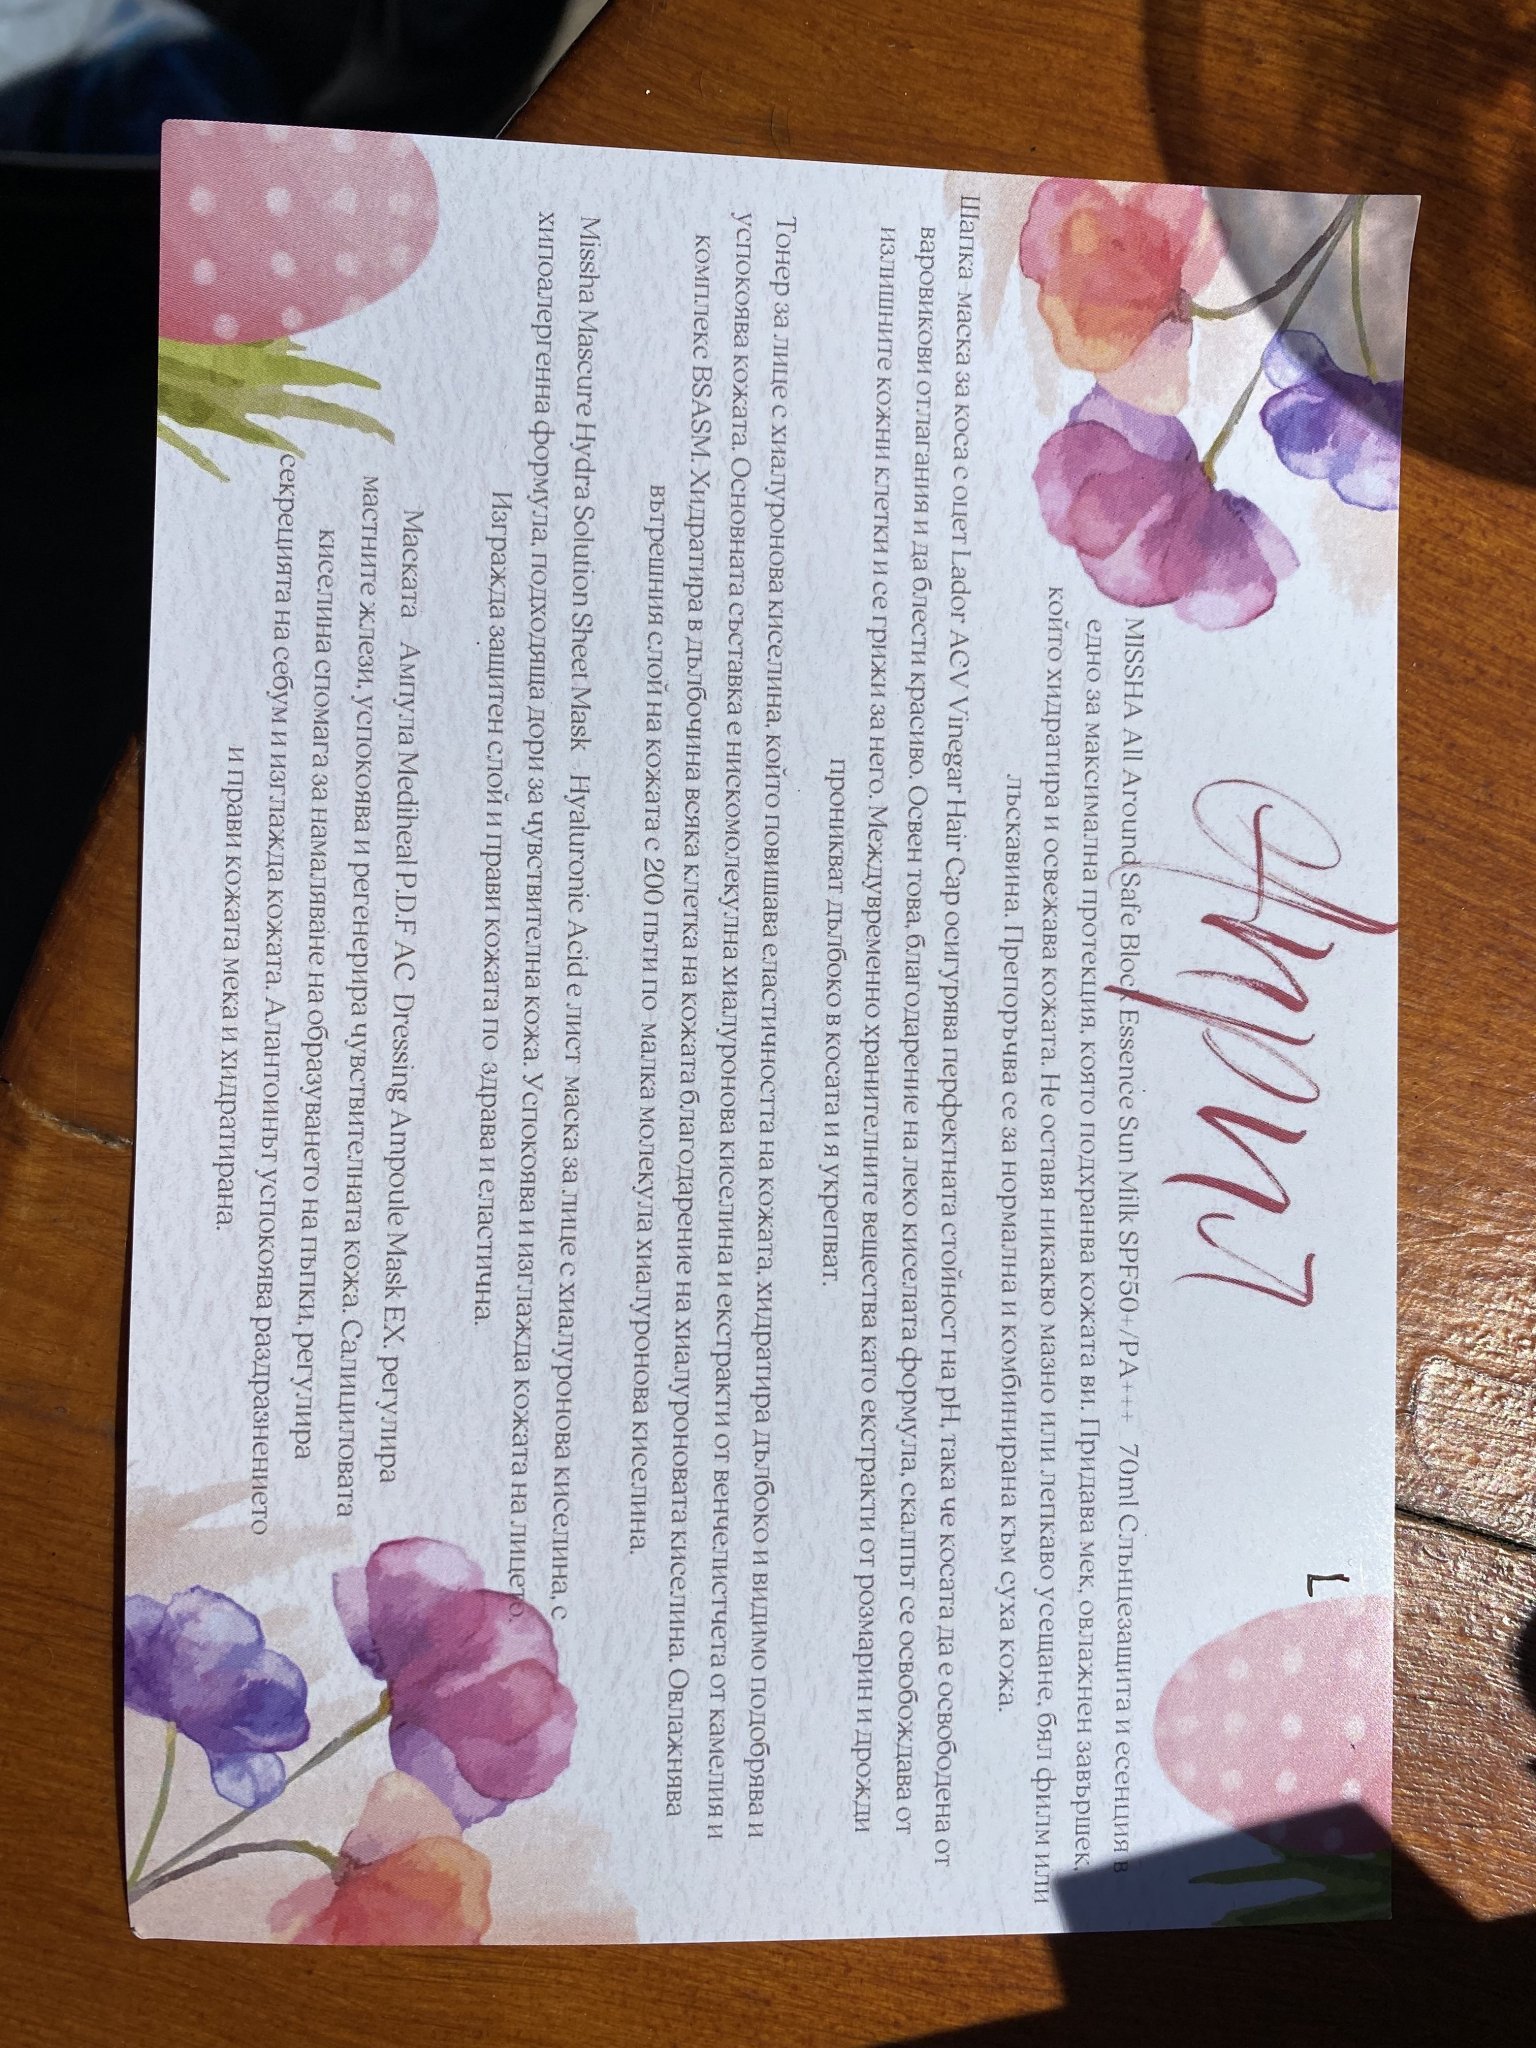 Април
L
MISSHA All Around Safe Block Essence Sun Milk SPF50+/PA+++ 70ml Слънцезащита и есенция в
едно за максимална протекция, която подхранва кожата ви. Придава мек, овлажнен завършек,
който хидратира и освежава кожата. Не оставя никакво мазно или лепкаво усещане, бял филм или
лъскавина. Препоръчва се за нормална и комбинирана към суха кожа.
Шапка-маска за коса с оцет Lador ACV Vinegar Hair Cap осигурява перфектната стойност на pH, така че косата да е освободена от
варовикови отлагания и да блести красиво. Освен това, благодарение на леко киселата формула, скалпът се освобождава от
излишните кожни клетки и се грижи за него. Междувременно хранителните вещества като екстракти от розмарин и дрожди
проникват дълбоко в косата и я укрепват.
Тонер за лице с хиалуронова киселина, който повишава еластичността на кожата, хидратира дълбоко и видимо подобрява и
успокоява кожата. Основната съставка е нискомолекулна хиалуронова киселина и екстракти от венчелистчета от камелия и
комплекс BSASM. Хидратира в дълбочина всяка клетка на кожата благодарение на хиалуроновата киселина. Овлажнява
вътрешния слой на кожата с 200 пъти по-малка молекула хиалуронова киселина.
Missha Mascure Hydra Solution Sheet Mask - Hyaluronic Acid е лист маска за лице с хиалуронова киселина, с
хипоалергенна формула, подходяща дори за чувствителна кожа. Успокоява и изглажда кожата на лицето.
Изгражда защитен слой и прави кожата по-здрава и еластична.
Маската - Ампула Mediheal P.D.F AC Dressing Ampoule Mask EX. регулира
мастните жлези, успокоява и регенерира чувствителната кожа. Салициловата
киселина спомага за намаляване на образуването на пъпки, регулира
секрецията на себум и изглажда кожата. Алантоинът успокоява раздразнението
и прави кожата мека и хидратирана.